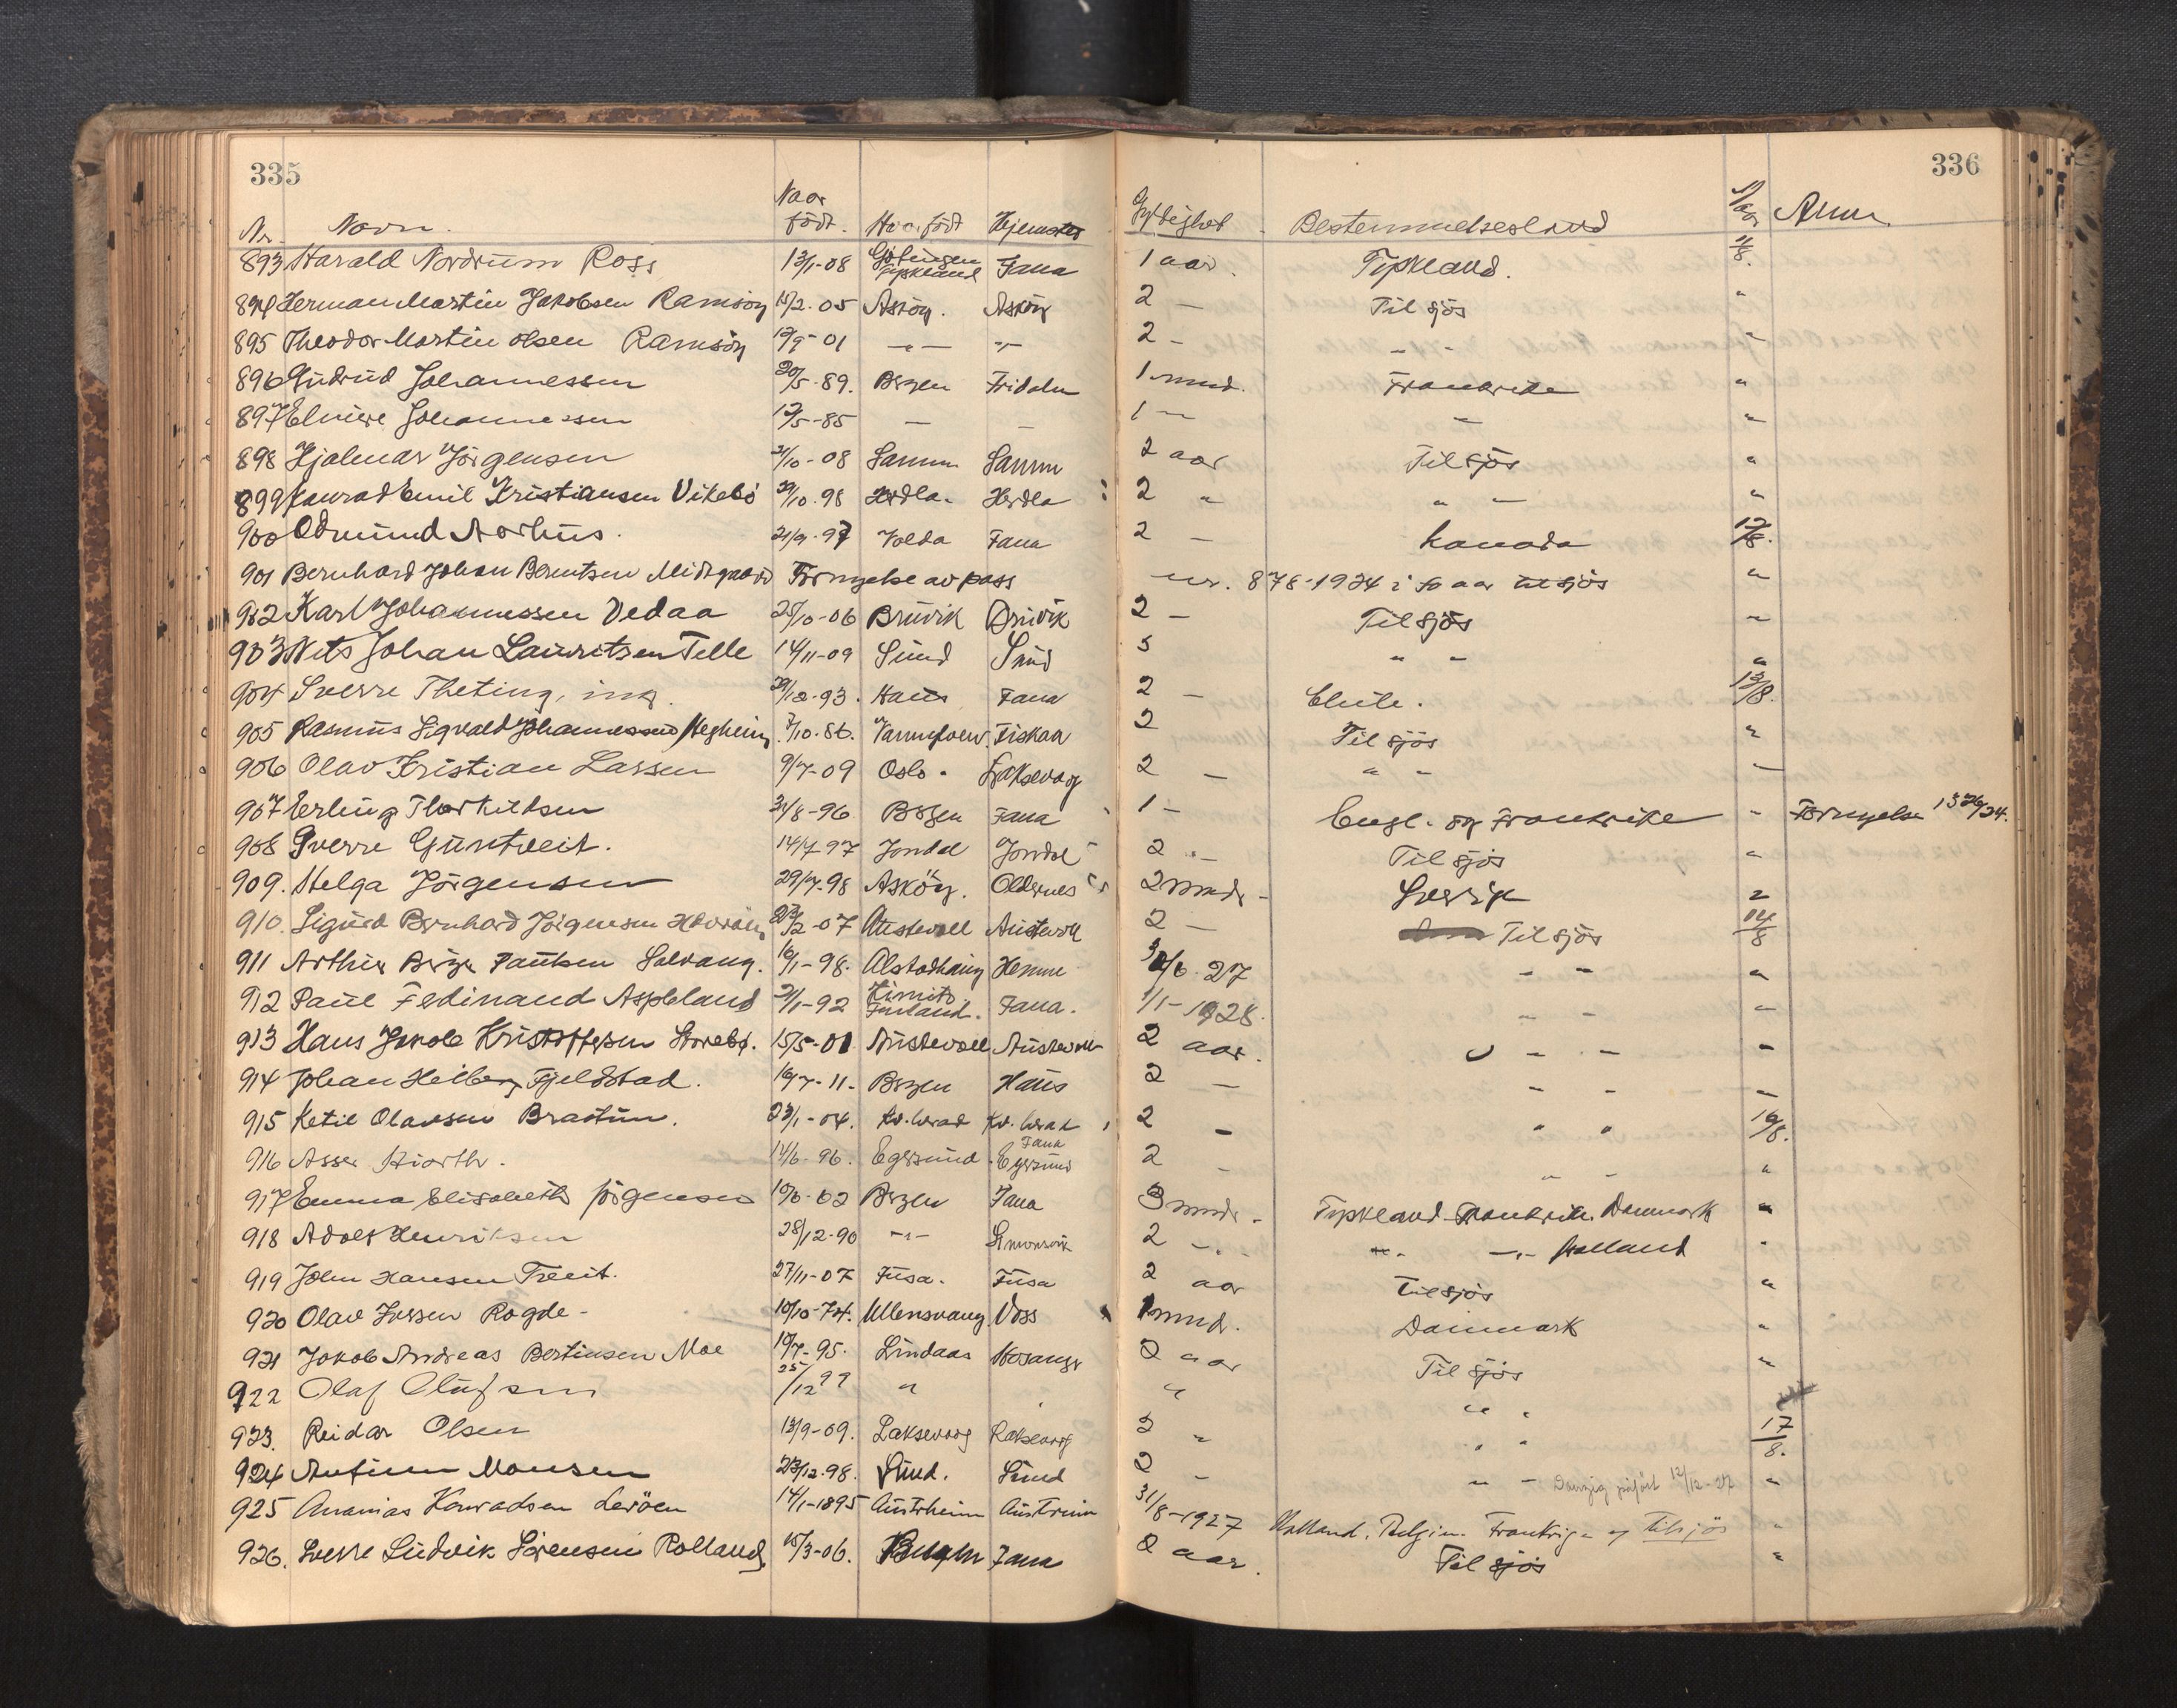 335
336
Nr. Navn. Naar født. Hvor født Hjemsted Gyldighet Bestemmelsesland Naar Anm
893 Harald Nordrum Ross 13/1-08 Göttingen Tyskland Fana 1 aar. Tyskland. 11/8.
894 Herman Martin Jakobsen Ramsöy 15/2-05 Asköy. Asköy 2 — Til sjös "
895 Theodor Martin Olsen Ramsöy 12/9-01 —"— —"— 2 — " — "
896 Gudrud Johannessen 20/5-89. Bergen Fridalen 1 mnd. Frankrike "
897 Elvire Johannessen 12/5-85 — — 1 — — "
898 Hjalmar Jörgensen 21/10-08 Samm Samm 2 aar Til sjös "
899 Konrad Emil Kristiansen Vikebö 29/10-98 Herdla. Herdla 2 " " — "
900 Odmund Aarhus. 21/9-97 Volda Fana 2 — Kanada 12/8.
901 Bernhard Johan Berntsen Midtgaard Fornyelse av pass nr. 878-1924 i to aar til sjös "
902 Karl Johannessen Vedaa 25/10-06 Bruvik Bruvik 2 — Til sjös "
903 Nils Johan Lauritsen Telle 14/11-09 Sund Sund 5 " — "
904 Sverre Theting, ing. 29/12-93. Haus Fana 2 — Chile. 13/8.
905 Rasmus Sigvald Johannessen Hegheim 7/10-86. Vannylven. Fiskaa 2 Til sjös "
906 Olav Kristian Larsen 9/7-09 Oslo. Laksevåg 2 — " — —
907 Erling Thorkildsen 31/8-96 Bergen Fana 1 — Engl. og Frankrike - Fornyelse 1326/24.
908 Sverre Guntveit. 14/7-97 Jondal Jondal 2 — Til sjös "
909. Helga Jörgensen 29/7-98 Asköy. Oldernes 2 mndr. Sverige "
910. Sigurd Bernhard Jörgensen 27/2-07 Austevoll Austevoll 2 — Til sjös 14/8
911 Arthur Birger Paulsen Solvang. 16/1-98. Alstadhaug Hemne /6-27 " — "
912 Paul Fedinand Aspeland 21/1-92 Kimito Finland. Fana. 1/1-1928. " — —
913 Hans Jakob Kristoffersen Storebö. 15/5-01 Austevoll Austevoll 2 aar. " — —
914 Johan Heiberg Fjeldstad. 16/7-11. Bergen Haus 2 — — — —
915 Ketil Olavsen Braatun. 23/1-04. Kv.herad Kv.herad 2 — " " 16/8.
916 Asser Hiorth. 14/6-96. Egersund Fana Egersund 2 — " — "
917 Emma Elisabeth Jörgensen 10/6-02 Bergen Fana 3 mndr. Tyskland Frankrike Danmark "
918 Adolf Henriksen 28/12-90 —"— Simonsvik 2 —"— — —"— Holland "
919 John Hansen Treit. 27/11-07 Fusa. Fusa 2 aar Til sjös "
920 Olav Iversen Rogde - 10/10-74. Ullensvang. Voss 1 mnd. Danmark "
921 Jakob Andreas Bertinsen Moe 10/7-95. Lindaas Hosanger 2 aar Til sjös "
922 Olaf Olufsen 25/12 99 " " " "
923. Reidar Olsen 13/9-09. Laksevaag Laksevaag 2 " " " 17/8.
924 Antinn Monsen 23/12-98. Sund. Sund 2 " " — Danzig påfört 12/12-27 "
925 Ananias Konradsen Leröen 14/1-1895 Austrheim Austrheim 31/8-1927 Holland, Belgien Frankrig og Til sjös "
926. Sverre Ludvik Sörensen Rolland 15/3-06. Bergen Fana 2 aar. Til sjös "